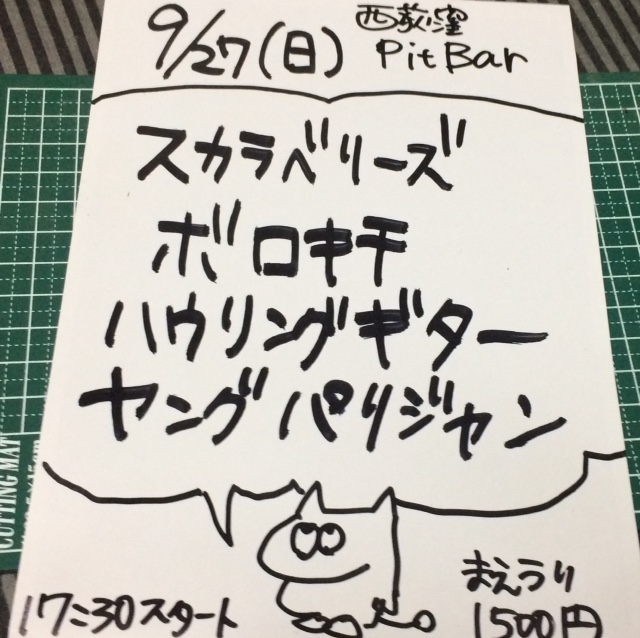 9/27(日)
西荻窪
PitBar
スカラベリーズ
ボロキチ
ハウリングギター
ヤングパリジャン
17:30スタート
まえうり
1500円
CUTTING MAT